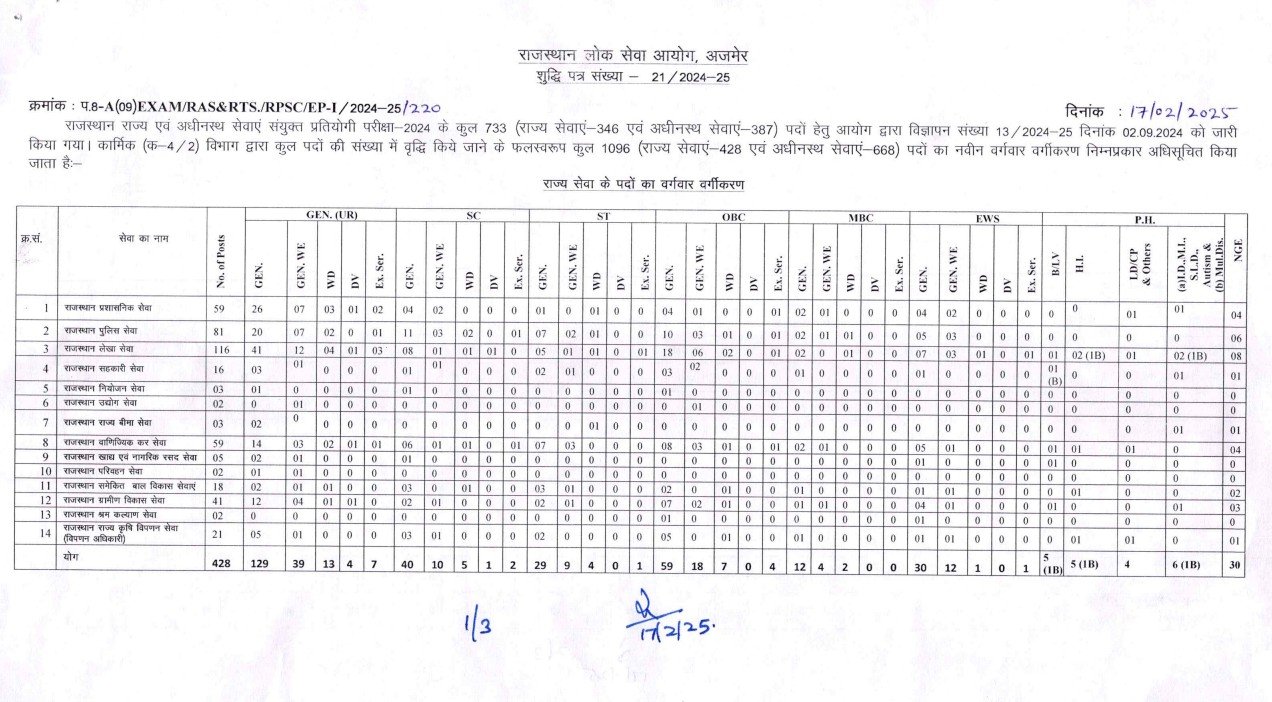 राजस्थान लोक सेवा आयोग, अजमेर
शुद्धि पत्र संख्या – 21/2024-25
क्रमांक : प.8-A(09)EXAM/RAS&RTS./RPSC/EP-I/2024-25/220 दिनांक : 17/02/2025
राजस्थान राज्य एवं अधीनस्थ सेवाएं संयुक्त प्रतियोगी परीक्षा-2024 के कुल 733 (राज्य सेवाएं-346 एवं अधीनस्थ सेवाएं-387) पदों हेतु आयोग द्वारा विज्ञापन संख्या 13/2024-25 दिनांक 02.09.2024 को जारी
किया गया। कार्मिक (क-4/2) विभाग द्वारा कुल पदों की संख्या में वृद्धि किये जाने के फलस्वरूप कुल 1096 (राज्य सेवाएं-428 एवं अधीनस्थ सेवाएं-668) पदों का नवीन वर्गवार वर्गीकरण निम्नप्रकार अधिसूचित किया
जाता है:-
राज्य सेवा के पदों का वर्गवार वर्गीकरण
क्र.सं. सेवा का नाम No. of Posts GEN. (UR) SC ST OBC MBC EWS P.H. NGE
GEN. GEN. WE WD DV Ex. Ser. GEN. GEN. WE WD DV Ex. Ser. GEN. GEN. WE WD DV Ex. Ser. GEN. GEN. WE WD DV Ex. Ser. GEN. GEN. WE WD DV Ex. Ser. GEN. GEN. WE WD DV Ex. Ser. B/LV H.I. LD/CP & Others (a)I.D.,M.I., S.L.D., Autism & (b).Mul.Dis.
1 राजस्थान प्रशासनिक सेवा 59 26 07 03 01 02 04 02 0 0 0 01 0 01 0 0 04 01 0 0 01 02 01 0 0 0 04 02 0 0 0 0 0 01 01 04
2 राजस्थान पुलिस सेवा 81 20 07 02 0 01 11 03 02 0 01 07 02 01 0 0 10 03 01 0 01 02 01 01 0 0 05 03 0 0 0 0 0 0 0 06
3 राजस्थान लेखा सेवा 116 41 12 04 01 03 08 01 01 01 0 05 01 01 0 01 18 06 02 0 01 02 0 01 0 0 07 03 01 0 01 01 02 (1B) 01 02 (1B) 08
4 राजस्थान सहकारी सेवा 16 03 01 0 0 0 01 01 0 0 0 02 01 0 0 0 03 02 0 0 0 01 0 0 0 0 01 0 0 0 0 01 (B) 0 0 01 01
5 राजस्थान नियोजन सेवा 03 01 0 0 0 0 01 0 0 0 0 0 0 0 0 0 01 0 0 0 0 0 0 0 0 0 0 0 0 0 0 0 0 0 0 0
6 राजस्थान उद्योग सेवा 02 0 01 0 0 0 0 0 0 0 0 0 0 0 0 0 0 01 0 0 0 0 0 0 0 0 0 0 0 0 0 0 0 0 0 0
7 राजस्थान राज्य बीमा सेवा 03 02 0 0 0 0 0 0 0 0 0 0 0 01 0 0 0 0 0 0 0 0 0 0 0 0 0 0 0 0 0 0 0 0 01 01
8 राजस्थान वाणिज्यिक कर सेवा 59 14 03 02 01 01 06 01 01 0 01 07 03 0 0 0 08 03 01 0 01 02 01 0 0 0 05 01 0 0 0 01 01 01 0 04
9 राजस्थान खाद्य एवं नागरिक रसद सेवा 05 02 01 0 0 0 01 0 0 0 0 0 0 0 0 0 0 0 0 0 0 0 0 0 0 0 01 0 0 0 0 01 0 0 0 0
10 राजस्थान परिवहन सेवा 02 01 01 0 0 0 0 0 0 0 0 0 0 0 0 0 0 0 0 0 0 0 0 0 0 0 0 0 0 0 0 0 0 0 0 0
11 राजस्थान समेकित बाल विकास सेवाएं 18 02 01 01 0 0 03 0 01 0 0 03 01 0 0 0 02 0 01 0 0 01 0 0 0 0 01 01 0 0 0 0 01 0 0 02
12 राजस्थान ग्रामीण विकास सेवा 41 12 04 01 01 0 02 01 0 0 0 02 01 0 0 0 07 02 01 0 0 01 01 0 0 0 04 01 0 0 0 01 0 0 01 03
13 राजस्थान श्रम कल्याण सेवा 02 0 0 0 0 0 0 0 0 0 0 0 0 0 0 0 01 0 0 0 0 0 0 0 0 0 01 0 0 0 0 0 0 0 0 0
14 राजस्थान राज्य कृषि विपणन सेवा (विपणन अधिकारी) 21 05 01 0 0 0 03 01 0 0 0 02 0 0 0 0 05 0 01 0 0 01 0 0 0 0 01 01 0 0 0 0 01 01 0 01
योग 428 129 39 13 4 7 40 10 5 1 2 29 9 4 0 1 59 18 7 0 4 12 4 2 0 0 30 12 1 0 1 5 (1B) 5 (1B) 4 6 (1B) 30
1/3
17/2/25.